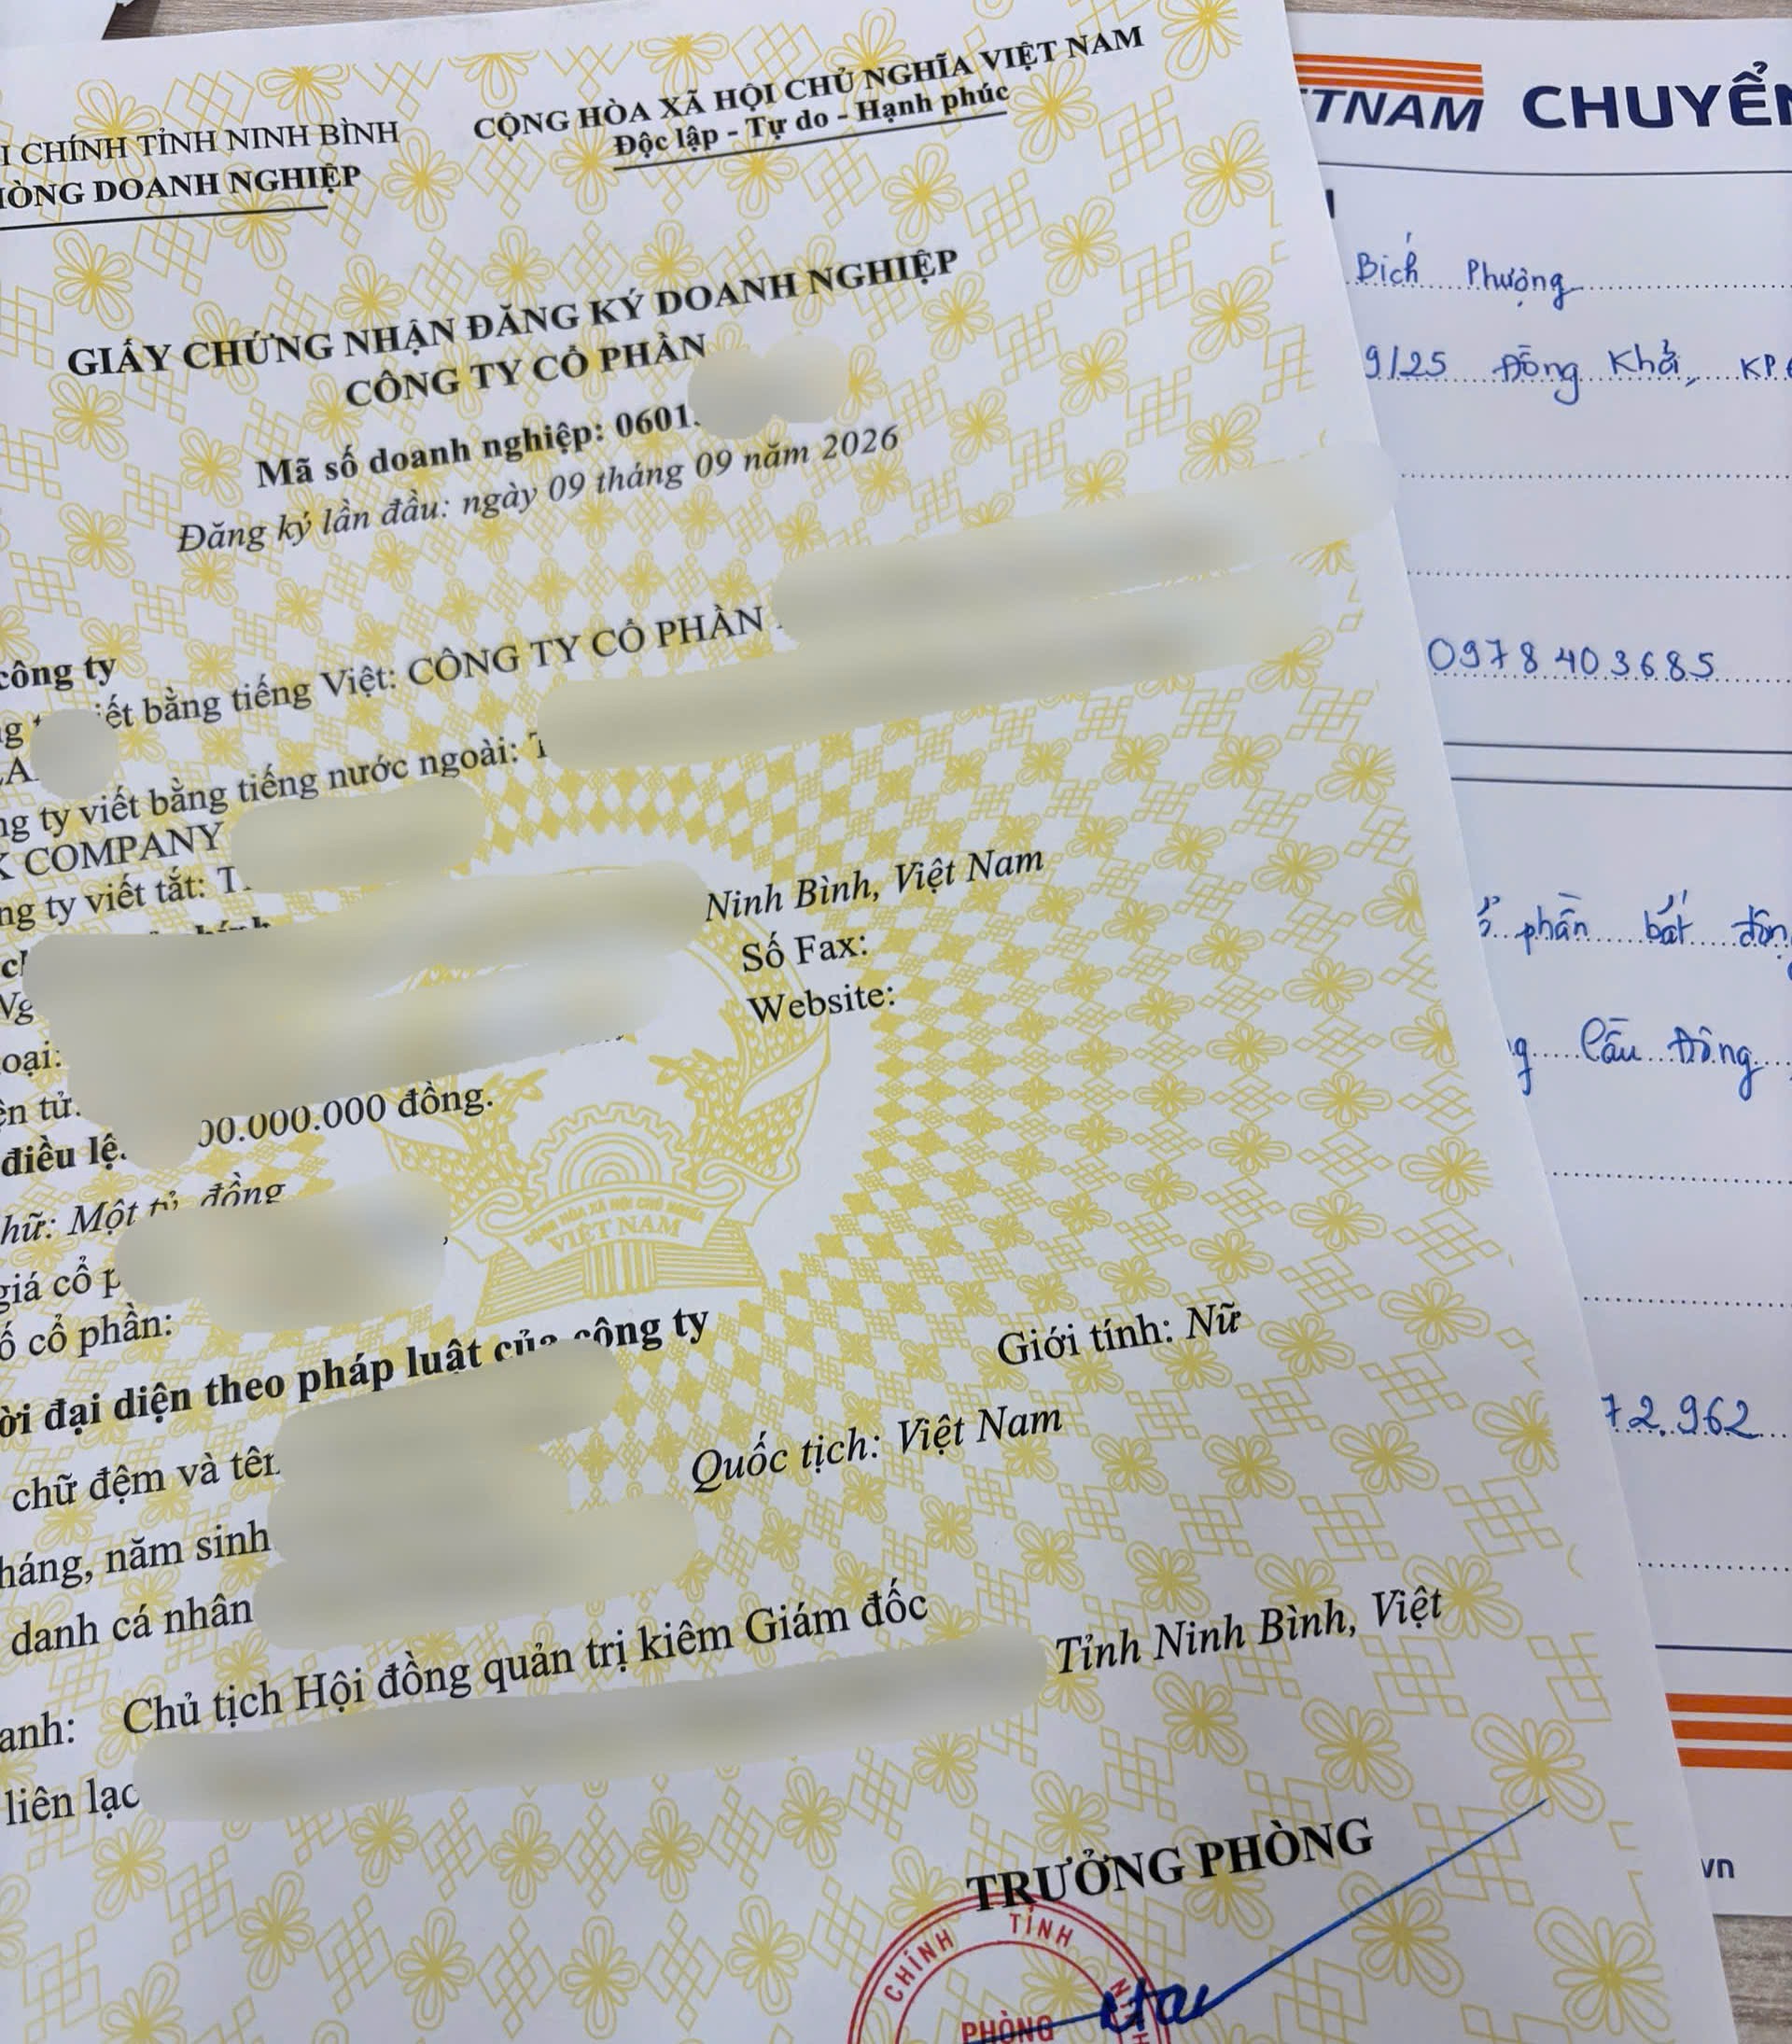 I CHÍNH TỈNH NINH BÌNH
ÒNG DOANH NGHIỆP
CỘNG HÒA XÃ HỘI CHỦ NGHĨA VIỆT NAM
Độc lập - Tự do - Hạnh phúc
GIẤY CHỨNG NHẬN ĐĂNG KÝ DOANH NGHIỆP
CÔNG TY CỔ PHẦN
Mã số doanh nghiệp: 0601
Đăng ký lần đầu: ngày 09 tháng 09 năm 2026
công ty
iết bằng tiếng Việt: CÔNG TY CỔ PHẦN
LA
ng ty viết bằng tiếng nước ngoài: T
K COMPANY
ng ty viết tắt: T
Ninh Bình, Việt Nam
oại:
Số Fax:
ện tử
Website:
điều lệ 00.000.000 đồng.
hữ: Một tỷ đồng
giá cổ p
ố cổ phần:
ời đại diện theo pháp luật của công ty
chữ đệm và tên
Giới tính: Nữ
háng, năm sinh
Quốc tịch: Việt Nam
danh cá nhân
anh: Chủ tịch Hội đồng quản trị kiêm Giám đốc
liên lạc
Tỉnh Ninh Bình, Việt
TRƯỞNG PHÒNG
CHÍNH TỈNH
PHÒNG
CỘNG HÒA XÃ HỘI CHỦ NGHĨA
VIỆT NAM
TNAM CHUYỂN
Bích Phượng
9/25 Đồng Khởi, KP
0978403685
ổ phần bất độn
g Cầu Đông
72.962
vn